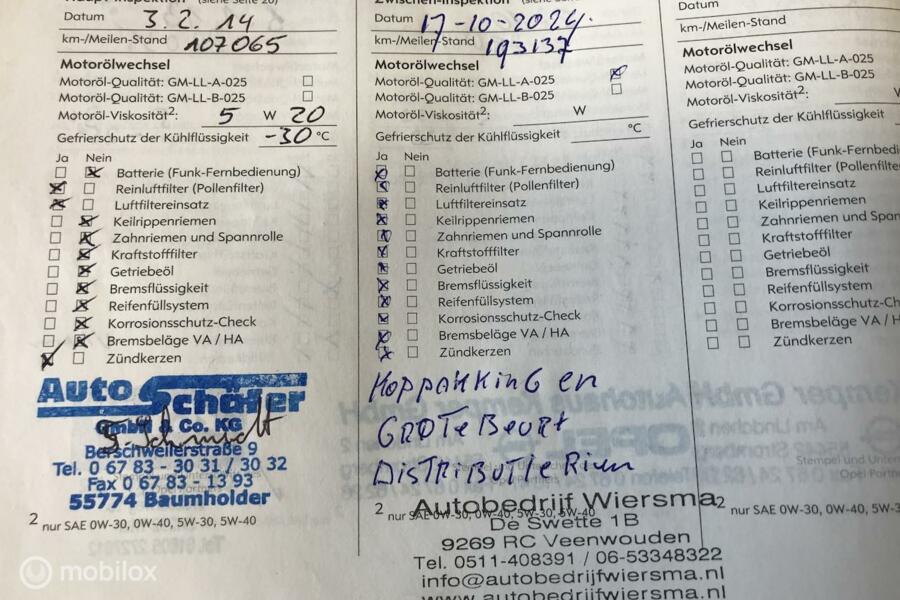 Haupt-Inspektion (siehe Seite 20)
Datum 3.2.14
km-/Meilen-Stand 107065
Motorölwechsel
Motoröl-Qualität: GM-LL-A-025
Motoröl-Qualität: GM-LL-B-025
Motoröl-Viskosität2: 5 W 20
Gefrierschutz der Kühlflüssigkeit -30 °C
Ja Nein
Batterie (Funk-Fernbedienung)
Reinluftfilter (Pollenfilter)
Luftfiltereinsatz
Keilrippenriemen
Zahnriemen und Spannrolle
Kraftstofffilter
Getriebeöl
Bremsflüssigkeit
Reifenfüllsystem
Korrosionsschutz-Check
Bremsbeläge VA / HA
Zündkerzen
Auto Schäfer
GmbH & Co. KG
S. Schmidt
Berschweilerstraße 9
Tel. 0 67 83 - 30 31 / 30 32
Fax 0 67 83 - 13 93
55774 Baumholder
2 nur SAE 0W-30, 0W-40, 5W-30, 5W-40
Zwischen-Inspektion
Datum 17-10-2024.
km-/Meilen-Stand 193137
Motorölwechsel
Motoröl-Qualität: GM-LL-A-025
Motoröl-Qualität: GM-LL-B-025
Motoröl-Viskosität2: W
Gefrierschutz der Kühlflüssigkeit °C
Ja Nein
Batterie (Funk-Fernbedienung)
Reinluftfilter (Pollenfilter)
Luftfiltereinsatz
Keilrippenriemen
Zahnriemen und Spannrolle
Kraftstofffilter
Getriebeöl
Bremsflüssigkeit
Reifenfüllsystem
Korrosionsschutz-Check
Bremsbeläge VA / HA
Zündkerzen
KOPPAKKING en
GROTE BEURT
DISTRIBUTIE Riem
2 nur SAE 0W-30, 0W-40, 5W-30, 5W-40
Autobedrijf Wiersma
De Swette 1B
9269 RC Veenwouden
Tel. 0511-408391 / 06-53348322
info@autobedrijfwiersma.nl
www.autobedrijfwiersma.nl
Datum
km-/Meilen-Stand
Motorölwechsel
Motoröl-Qualität: GM-LL-A-025
Motoröl-Qualität: GM-LL-B-025
Motoröl-Viskosität2:
Gefrierschutz der Kühlflüssigkeit
Ja Nein
Batterie (Funk-Fernbedi
Reinluftfilter (Pollenfilte
Luftfiltereinsatz
Keilrippenriemen
Zahnriemen und Span
Kraftstofffilter
Getriebeöl
Bremsflüssigkeit
Reifenfüllsystem
Korrosionsschutz-Ch
Bremsbeläge VA / HA
Zündkerzen
Stempel und Unter
2 nur SAE 0W-30, 0W-40, 5W-30, 5W-
mobilox